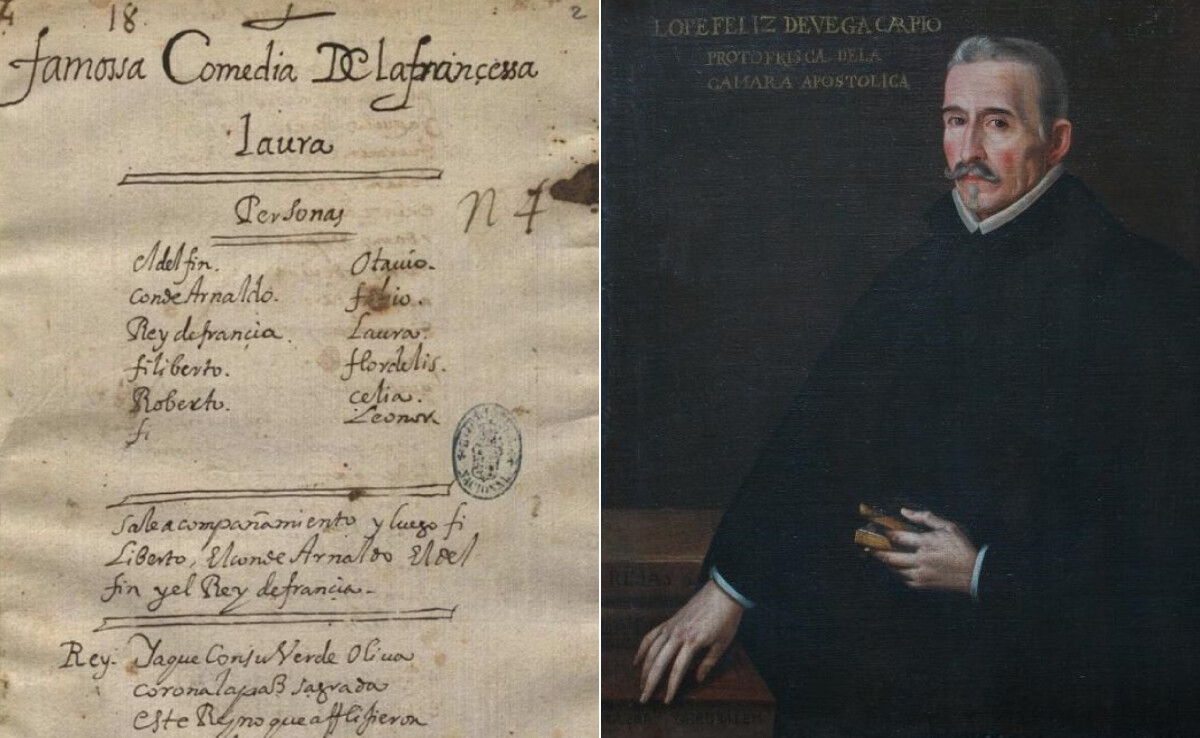 18
2
famossa Comedia De lafrançessa
Laura
Personas
n 4
eldelfin. Otauio.
conde Arnaldo. fabio.
Rey defrançia. Laura.
filiberto. flordelis.
Roberto. celia.
fi Leonor
NACIONAL
sale acompañamiento y luego fi
Liberto, El conde Arnaldo El del
fin y el Rey defrancia.
Rey. Yaque Consu Verde Oliua
corona la paz sagrada
este Reyno que afflijieron
LOPE FELIZ DE VEGA CARPIO
PROTOFRISCA DELA
CAMARA APOSTOLICA